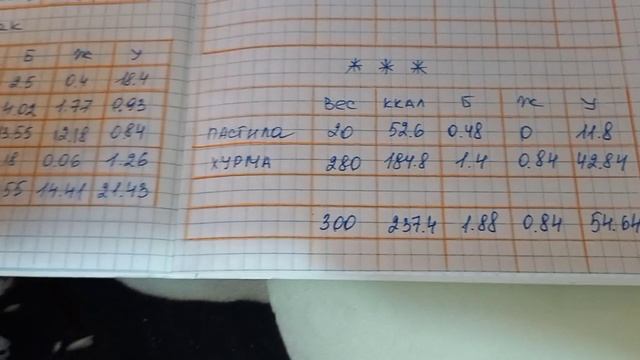 Б Ж У
2.5 0.4 18.4
4.02 1.77 0.93
3.55 12.18 0.84
18 0.06 1.26
55 14.41 21.43
* * *
ВЕС ККАЛ Б Ж У
ПАСТИЛА 20 52.6 0.48 0 11.8
ХУРМА 280 184.8 1.4 0.84 42.84
300 237.4 1.88 0.84 54.64